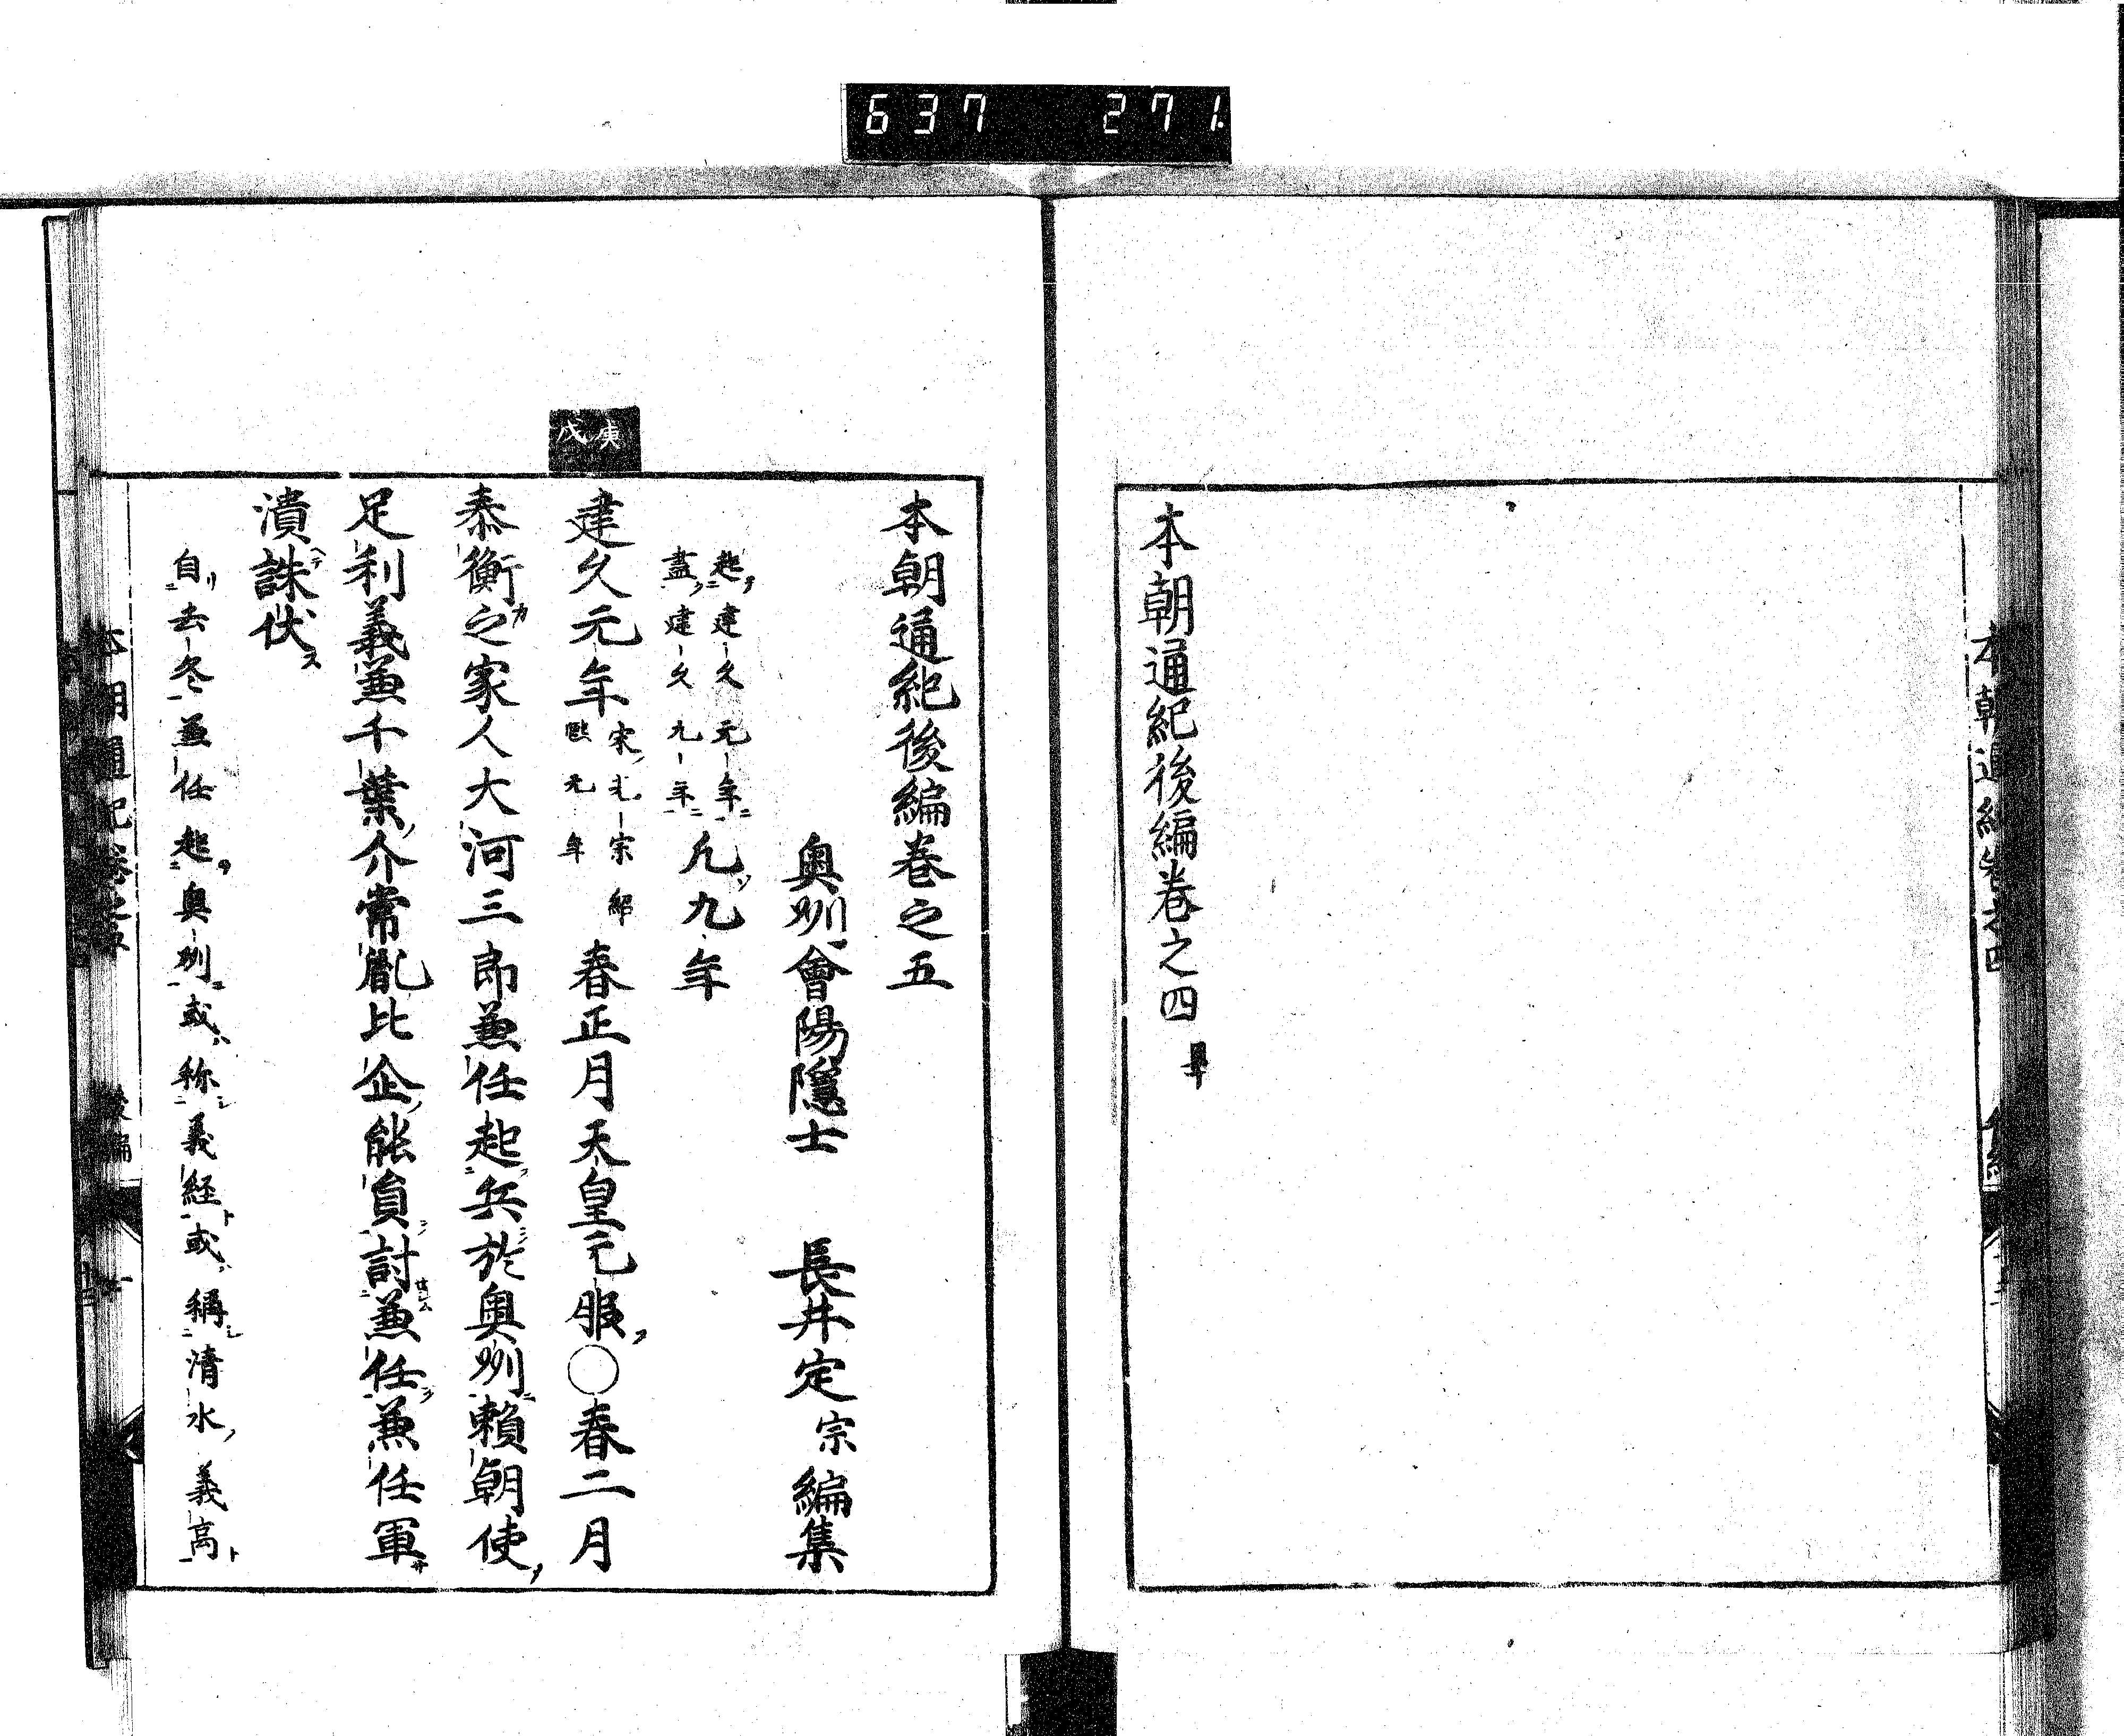 637 271
本朝通紀後編巻之四
本朝通紀後編巻之五
奥州會陽隱士 長井定宗編集
起建久元年
盡建久九年
凢九年
庚戌
建久元年
宋光宗紹
熙元年
春正月天皇元服〇春二月
泰衡之家人大河三郎兼任起兵於奥州頼朝使
足利義兼千葉介常胤比企能員討兼任兼任軍
潰誅伏
自去冬兼任起奥州或称義経或稱清水義高